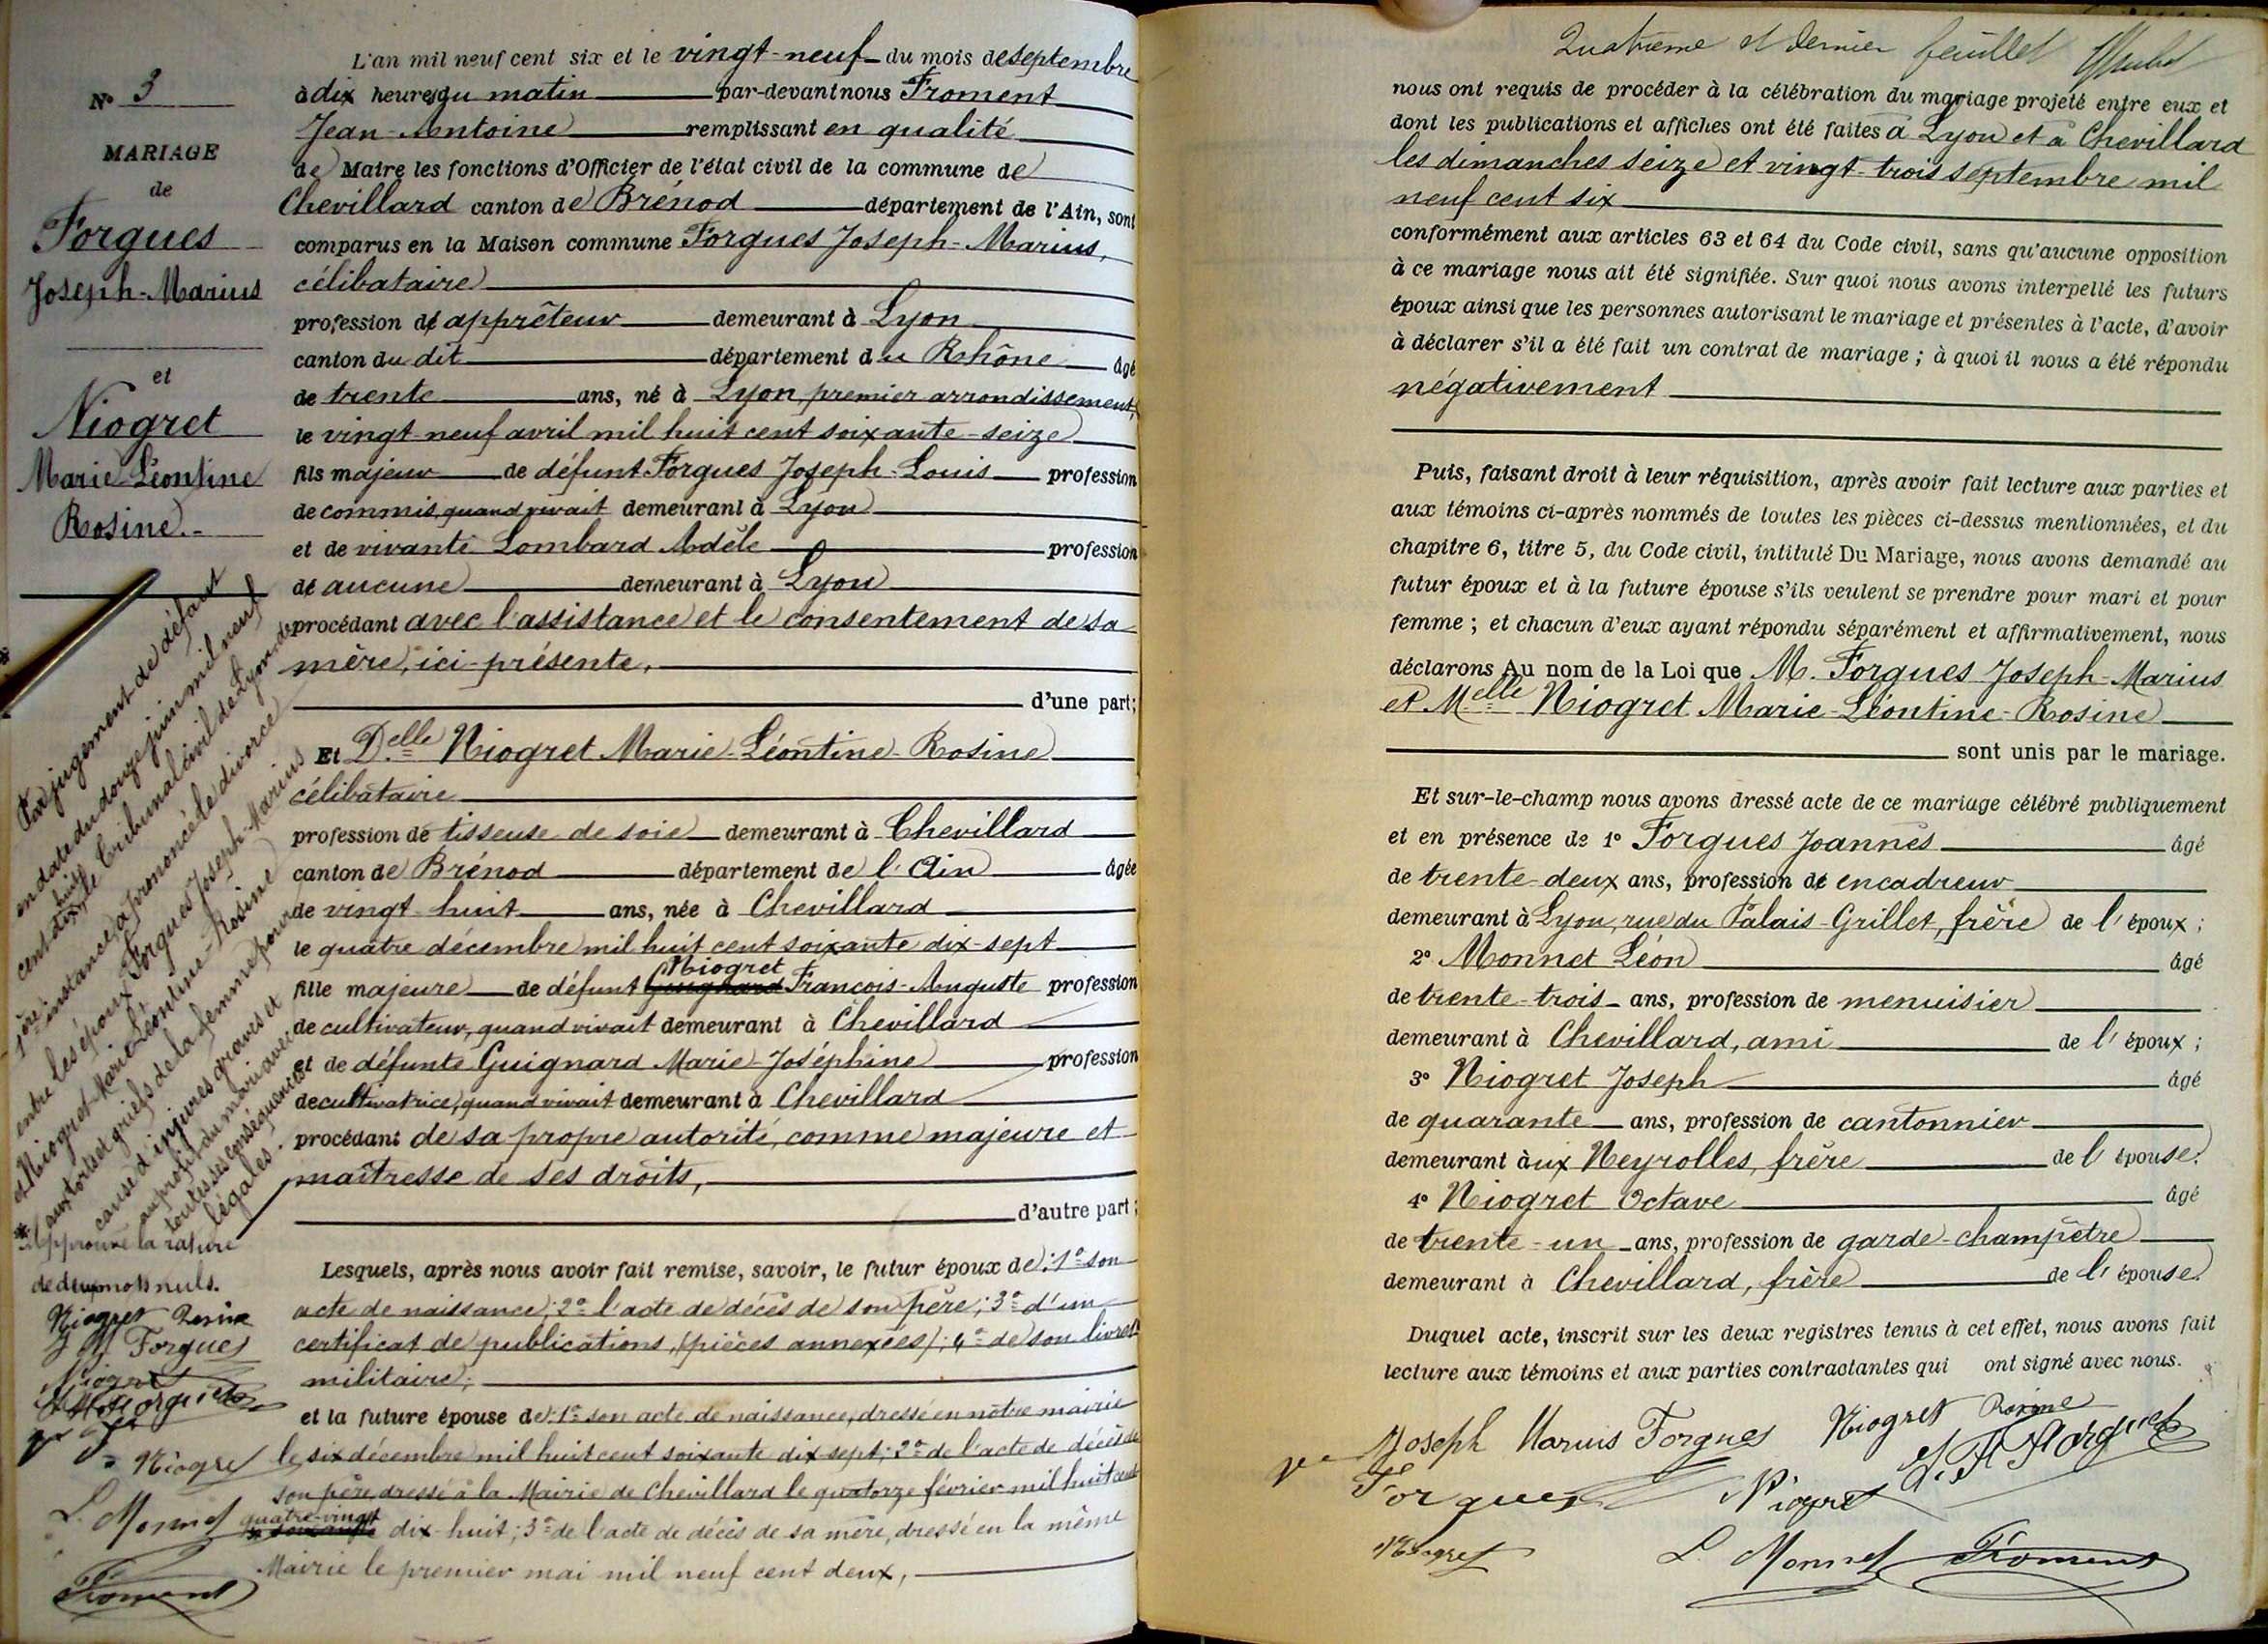 N° 3
MARIAGE
de
Forgues
Joseph-Marius
et
Niogret
Marie-Léontine
Rosine.-
Par jugement de défaut
en date du douze juin mil neuf
cent dix huit, le Tribunal civil de Lyon de
1ère instance, a prononcé le divorce
entre les époux Forgues Joseph-Marius
et Niogret Marie Léontine-Rosine
aux torts et griefs de la femme pour
cause d'injures graves et
au profit du mari avec
toutes ses conséquences
légales.
* Approuvé la rature
de deux mots nuls.
Niogret Rosine
J M Forgues
Niogret
Niogret
L. Monnet
Froment
L'an mil neuf cent six et le vingt-neuf du mois de septembre
à dix heures du matin par-devant nous Froment
Jean-Antoine remplissant en qualité
de Maire les fonctions d'Officier de l'état civil de la commune de
Chevillard canton de Brénod département de l'Ain, sont
comparus en la Maison commune Forgues Joseph-Marius,
célibataire
profession d'apprêteur demeurant à Lyon
canton du dit département du Rhône âgé
de trente ans, né à Lyon, premier arrondissement,
le vingt-neuf avril mil huit cent soixante-seize
fils majeur de défunt Forgues Joseph-Louis profession
de commis, quand vivait demeurant à Lyon
et de vivante Lombard Adèle profession
de aucune demeurant à Lyon
procédant avec l'assistance et le consentement de sa
mère, ici-présente,
d'une part;
Et Delle Niogret Marie-Léontine-Rosine
célibataire
profession de tisseuse de soie demeurant à Chevillard
canton de Brénod département de l'Ain âgée
de vingt-huit ans, née à Chevillard
le quatre décembre mil huit cent soixante dix-sept
fille majeure de défunt Guignard Niogret François-Auguste profession
de cultivateur, quand vivait demeurant à Chevillard
et de défunte Guignard Marie-Joséphine profession
de cultivatrice, quand vivait demeurant à Chevillard
procédant de sa propre autorité, comme majeure et
maîtresse de ses droits,
d'autre part;
Lesquels, après nous avoir fait remise, savoir, le futur époux de: 1° son
acte de naissance; 2° l'acte de décès de son père; 3° d'un
certificat de publications, (pièces annexées); 4° de son livret
militaire;
et la future épouse de: 1° son acte de naissance, dressé en notre mairie
le six décembre mil huit cent soixante dix sept; 2° de l'acte de décès de
son père, dressé à la Mairie de Chevillard le quatorze février mil huit cent
* soixante quatre-vingt dix-huit; 3° de l'acte de décès de sa mère, dressé en la même
Mairie le premier mai mil neuf cent deux,
Quatrième et dernier feuillet
nous ont requis de procéder à la célébration du mariage projeté entre eux et
dont les publications et affiches ont été faites à Lyon et à Chevillard
les dimanches seize et vingt-trois septembre mil
neuf cent six
conformément aux articles 63 et 64 du Code civil, sans qu'aucune opposition
à ce mariage nous ait été signifiée. Sur quoi nous avons interpellé les futurs
époux ainsi que les personnes autorisant le mariage et présentes à l'acte, d'avoir
à déclarer s'il a été fait un contrat de mariage; à quoi il nous a été répondu
négativement
Puis, faisant droit à leur réquisition, après avoir fait lecture aux parties et
aux témoins ci-après nommés de toutes les pièces ci-dessus mentionnées, et du
chapitre 6, titre 5, du Code civil, intitulé Du Mariage, nous avons demandé au
futur époux et à la future épouse s'ils veulent se prendre pour mari et pour
femme; et chacun d'eux ayant répondu séparément et affirmativement, nous
déclarons Au nom de la Loi que M. Forgues Joseph-Marius
et Melle Niogret Marie-Léontine-Rosine
sont unis par le mariage.
Et sur-le-champ nous avons dressé acte de ce mariage célébré publiquement
et en présence de 1° Forgues Joannès âgé
de trente-deux ans, profession d'encadreur
demeurant à Lyon, rue du Palais-Grillet, frère de l'époux;
2° Monnet Léon âgé
de trente-trois ans, profession de menuisier
demeurant à Chevillard, ami de l'époux;
3° Niogret Joseph âgé
de quarante ans, profession de cantonnier
demeurant aux Neyrolles, frère de l'épouse.
4° Niogret Octave âgé
de trente-un ans, profession de garde-champêtre
demeurant à Chevillard, frère de l'épouse.
Duquel acte, inscrit sur les deux registres tenus à cet effet, nous avons fait
lecture aux témoins et aux parties contractantes qui ont signé avec nous.
Joseph Marius Forgues Niogret Rosine
Ve Forgues Niogret J. Forgues
Niogret L. Monnet Froment